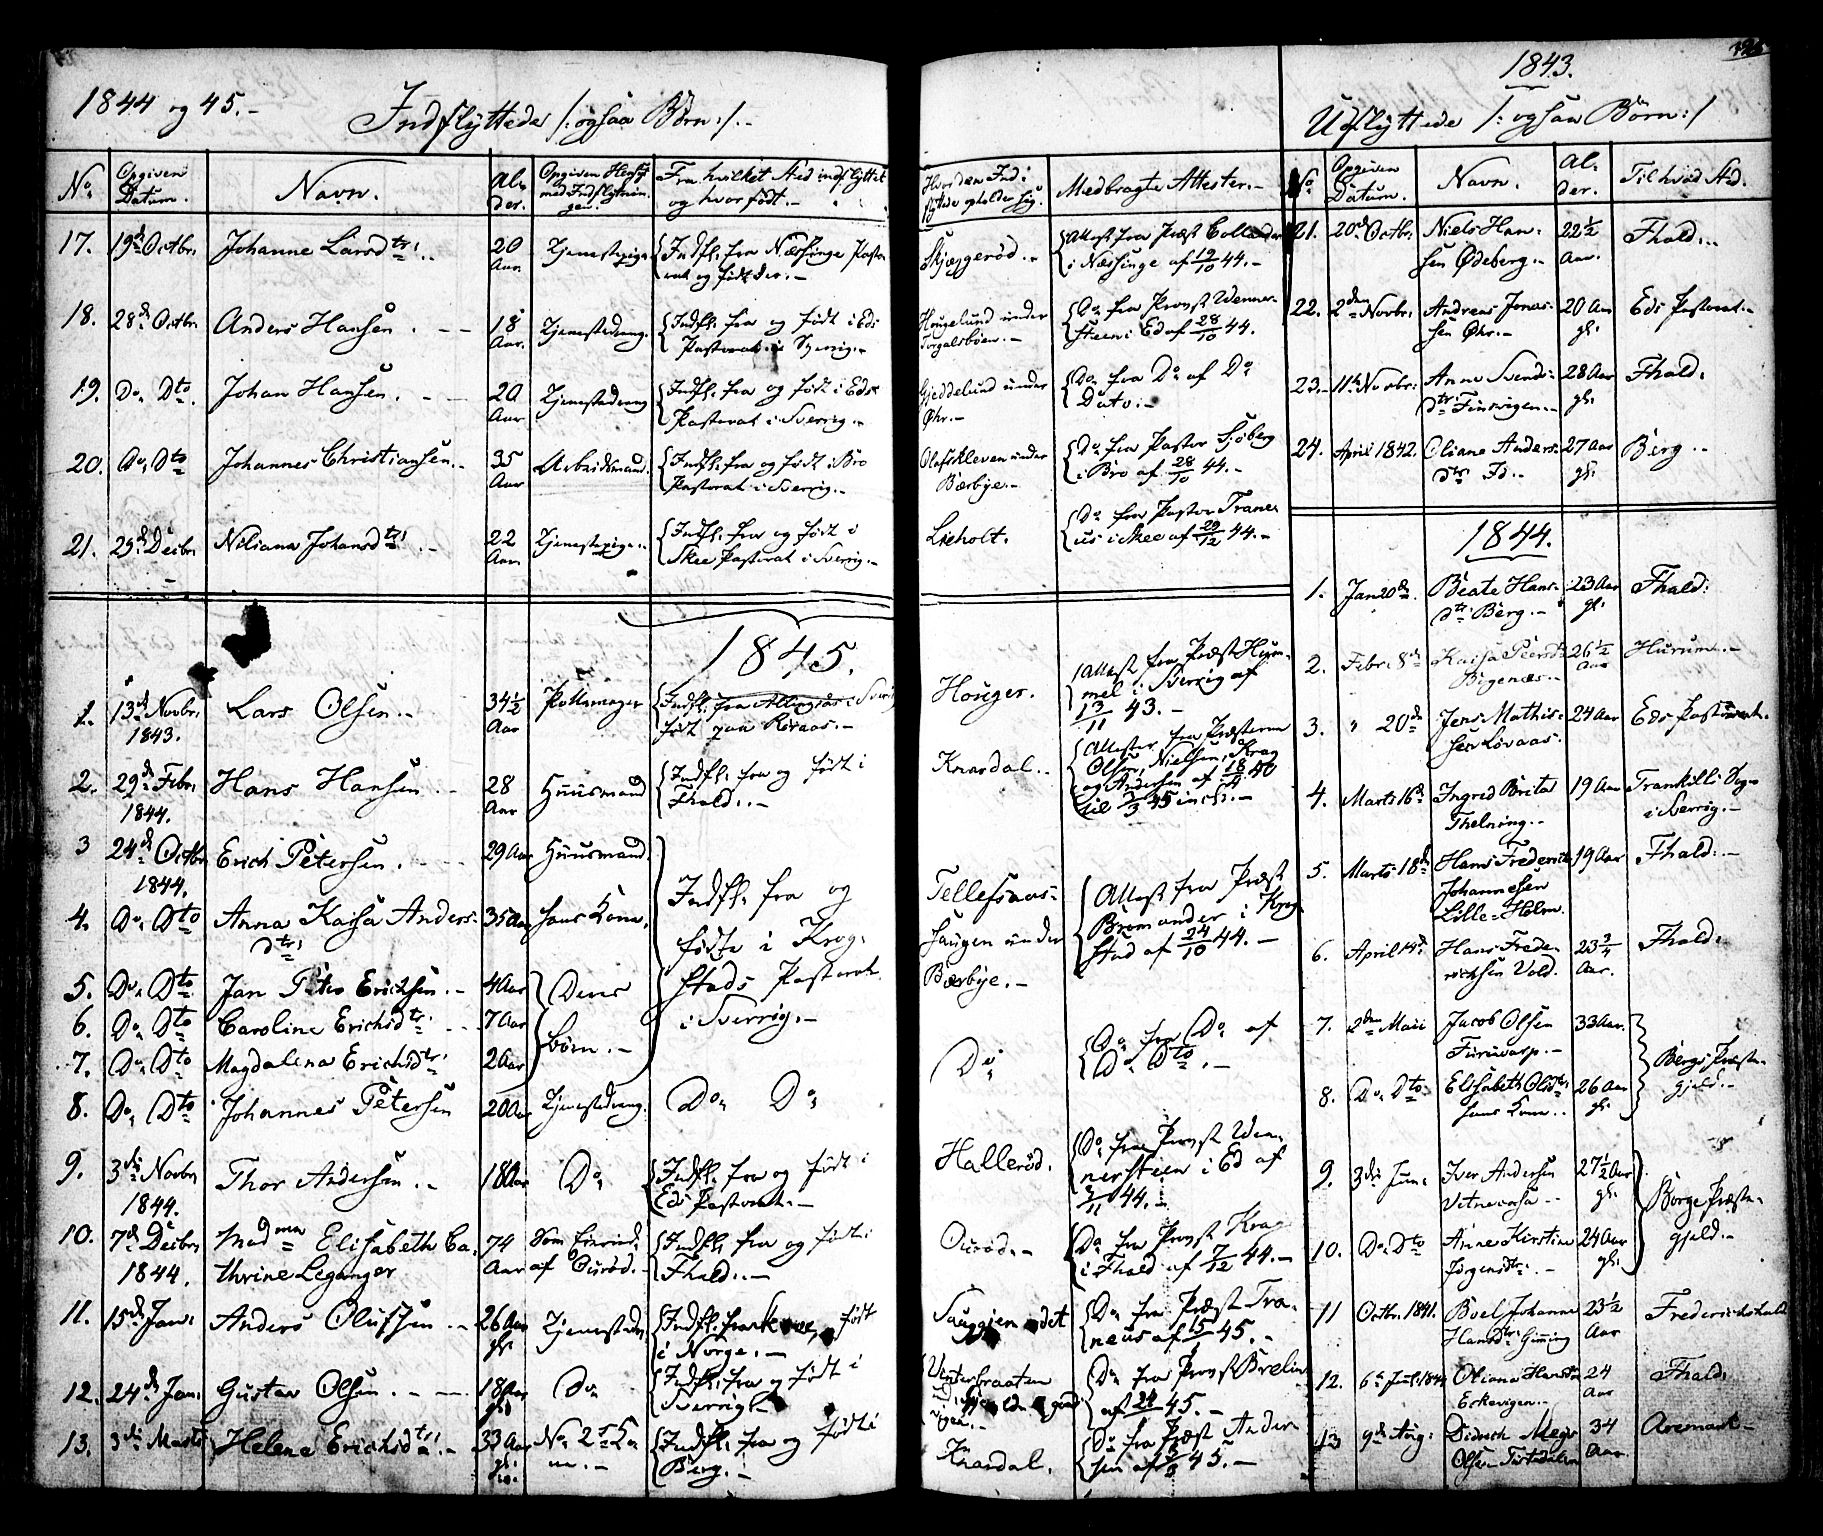 1844 og 45.-
Indflyttede /: ogsaa Börn :/.-
No.
Opgiven Datum.
Navn.
Alder.
Opgiven Hensigt med Indflytningen.
Fra hvilket Sted indflyttet og hvor født.-
Hvor den Indflyttede opholder sig.
Medbragte Attester.-
17. 19de Octbr. Johanne Larsdtr. 20 Aar. Tjenestepige
{Indfl. fra Næssinge Pastorat og født der.-
Skjæggerød.-
{Attest fra Præst Collander i Næssinge af 19/10 44.-
18. 28de Octbr. Anders Hansen.-- 18 Aar. Tjenestedreng.
{Indfl. fra og født i Eds Pastorat i Sverrig.-
Hougelund under Torgalsbøen.-
{Do fra Provst Wennersteen i Ed af 28/10 44.
19. Do. Dto. Johan Hansen.-- 20 Aar Tjenestedreng
{Indfl. fra og født i Eds Pastorat i Sverrig.-
Gjeddelund under Øhr.-
{Do fra Do af Do Dato.-
20. Do. Dto Johannes Christiansen.- 35 Aar Arbeidsmand.
{Indfl. fra og født i Bro Pastorat i Sverrig.-
Olafskleven under Bærbye.-
{Do fra Pastor Sjöberg i Bro af 28/10 44.-
21. 25de Decbr. Niliana Johansdtr. 22 Aar Tjenestepige.
{Indfl. fra og født i Skee Pastorat i Sverrig.-
Lieholt.
{Do fra Pastor Traneus i Skee af 20/12 44.-
1845.
1. 13de Novbr. 1843. Lars Olsen.- 34½ Aar Pottemager
{Indfl. fra i Sverrig født paa
Houger.
{Attest fra Præst Hummel i Sverrig af 13/11 43.-
2. 29de Febr. 1844. Hans Hansen.- 28 Aar Huusmand
{Indfl. fra og født i Fhald.-
Knardal.
{Attester fra Præsterne Olsen, Nielsen, Krag og Andersen af 18/4 40 til 3/3 45 incl.-
3 24de Octbr. 1844. Erich Petersen.-- 29 Aar Huusmand.
4. Do. Dto Anna Kaisa Andersdtr. 35 Aar hans Kone.
5. Do. Dto Jan Peter Erichsen.- 4 Aar
6. Do. Dto Caroline Erichsdtr. 7 Aar
7. Do. Dto Magdalena Erichsdtr. 2 Aar
}Deres Børn.-
}Indfl. fra og fødte i Krogstads Pastorat i Sverrig.-
Tellefsaashaugen under Bærbye.-
{Attest fra Præst Bromander i Krogstad af 24/10 44.-
8. Do. Dto Johannes Petersen 20 Aar Tjenestedreng. Do. Do.
Do.
{Do. fra Do. af Do. Dto.-
9. 3die Novbr. 1844. Thor Andersen.- 18 Aar Do.
{Indfl. fra og født i Eds Pastorat.-
Hallerød.
{Do. fra Provst Wennersteen i Ed af 2/11 44.-
10. 7de Decbr. 1844. Madme Elisabeth Cathrine Leganger 74 Aar af Ourød.-
{Indfl. fra og født i Fhald.-
Ourød.-
{Do fra Provst Krag i Fhald af 7/12 44.-
11. 15de Jan. Anders Olufsen.- 26 Aar gl. Tjenestedr.
{Indfl. fra født i Norge.-
{Do. fra Præst Traneus af 15/1 45.-
12. 24de Jan. Gustav Olsen.-- 18 Aar gl. Do.
{Indfl. fra og født i Sverrig.-
Vesterbraaten
{Do fra Provst Brelin af 24/1 45.-
13. 3die Marts Helene Erichsdtr.- 33 Aar gl. No. 2s Kone.-
{Indfl. fra og født i Berg.-
Knardal.
{Do fra Præst Andersen af 3/3 45.-
1843.
Udflyttede /: ogsaa Börn :/
No.
Opgiven Datum.
Navn.
Alder.
Til hvad Sted.
21. 20de Octbr. Niels Hansen Ødeberg.- 22½ Aar. Fhald.-
22. 2den Novbr. Andreas Jonassen Øhr.- 20 Aar gl. Eds Pastorat.-
23. 11te Novbr. Anne Svendsdtr. Finsvigen.- 28 Aar gl. Fhald.
24. April 1842. Oliane Andersdtr. Id.. 27 Aar gl. Berg.-
1844.
1. Jan 20de. Beate Hansdtr. Berg.- 23 Aar gl. Fhald.
2. Febr. 8de Kaisa Peersdtr. Bigenæs.- 26½ Aar Hurum.-
3. " 20de Jens Mathissen Lövaas. 24 Aar Eds Pastorat.
4. Marts 16de Ingred Brita Thelning.- 19 Aar Frankills Sogn i Sverrig.-
5. Marts 18de Hans Frederik Johannesen Lille-Holm. 19 Aar Fhald.-
6. April 14de Hans Frederichsen Vold. 23¾ Aar. Fhald.
7. 2den Mai Jacob Olsen Furuvarp.- 33 Aar.
8. Do. Dto Elisabeth Olsdtr. hans Kone.. 26 Aar gl.
}Bergs Præstegjeld.-
9. 3die Jun. Iver Andersen 27½ Aar gl.
10. Do. Dto Anne Kirstine Jörgensdtr.- 24 Aar gl.
}Borge Præstegjeld.-
11 Octbr. 1841. Boel Johanne Hansdtr. Gimming 23½ Aar Frederichshald
12. 6te Juli 1844 Oliana Hansdtr. Eskevigen.- 24 Aar Fhald.
13 9de Aug. Didrich Olsen 34 Aar. Aremark-